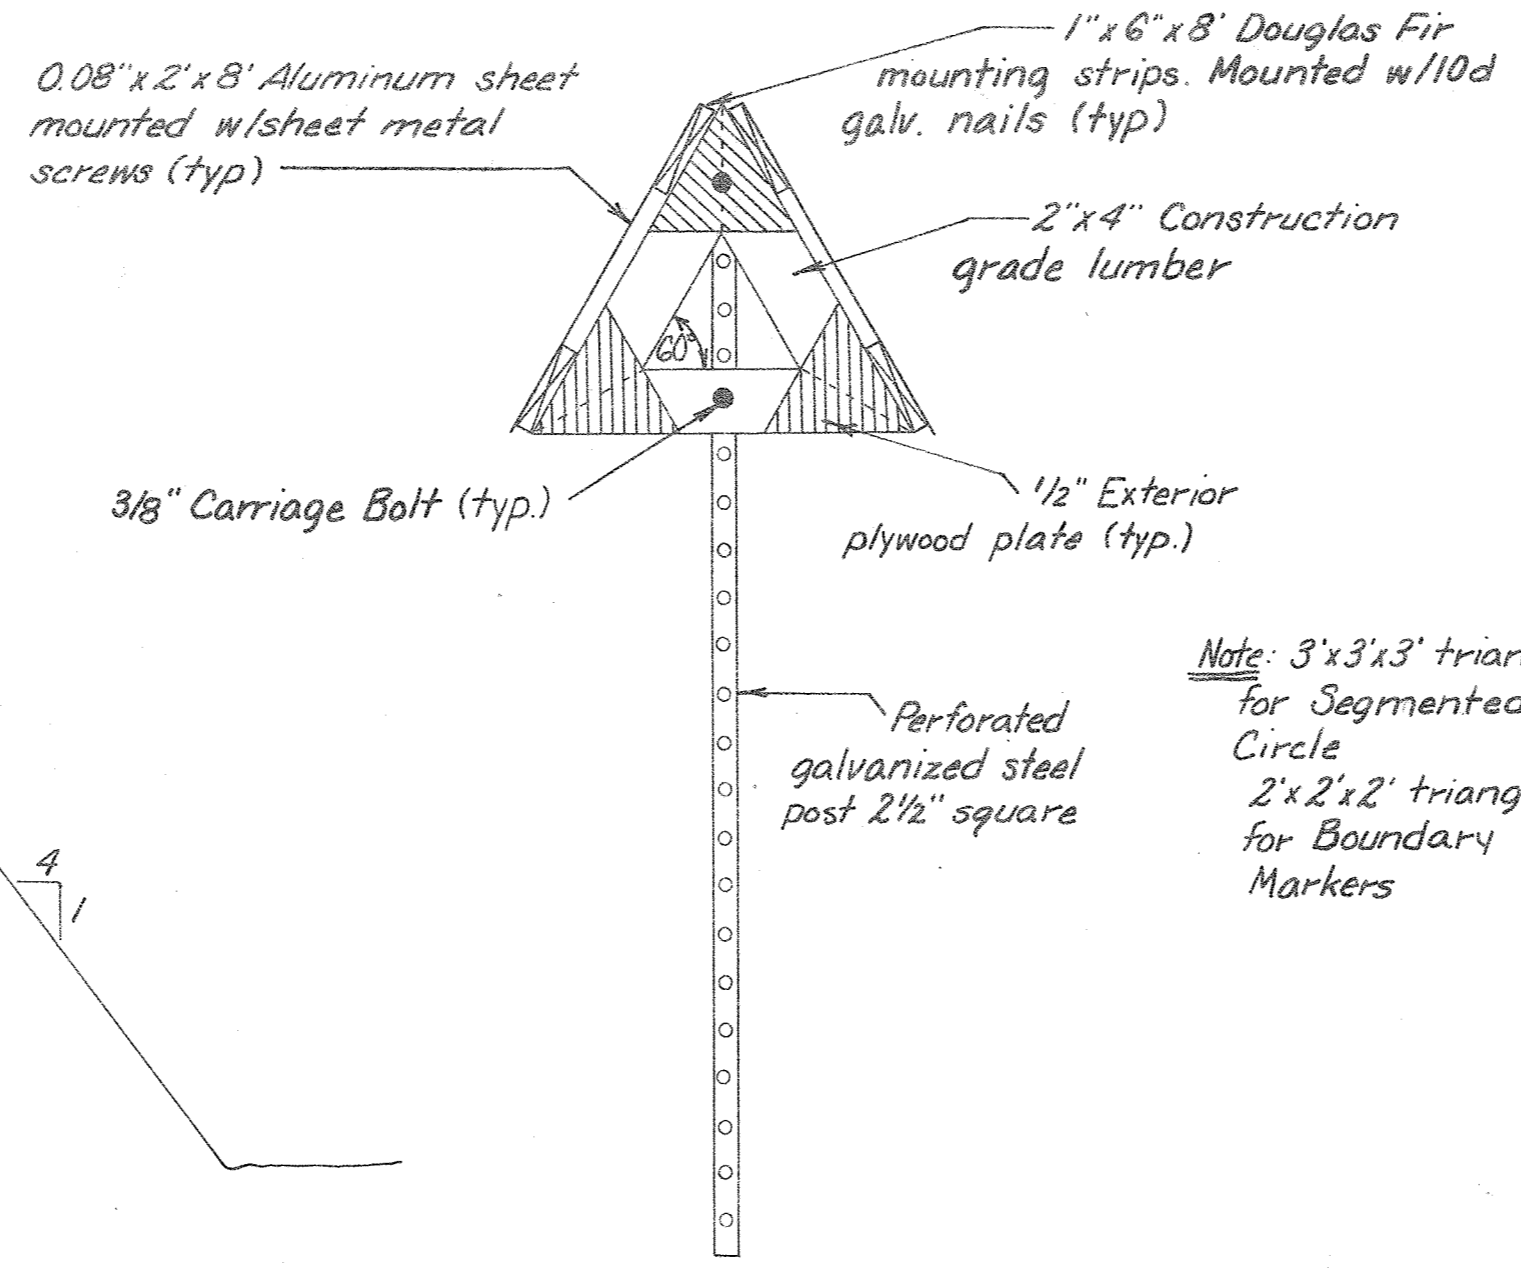 0.08"x 2'x 8' Aluminum sheet
mounted w/sheet metal
screws (typ)
1"x 6"x 8' Douglas Fir
mounting strips. Mounted w/10d
galv. nails (typ)
2"x4" Construction
grade lumber
60°
3/8" Carriage Bolt (typ.)
1/2" Exterior
plywood plate (typ.)
Perforated
galvanized steel
post 2 1/2" square
Note: 3'x3'x3' trian
for Segmented
Circle
2'x2'x2' triang
for Boundary
Markers
4
1